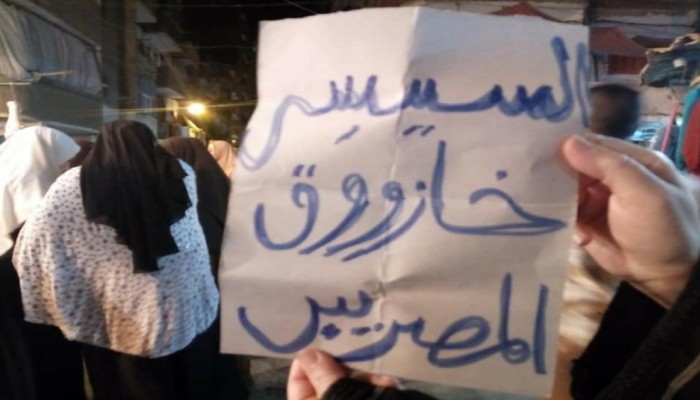 السيسي
خازووق
المصريين